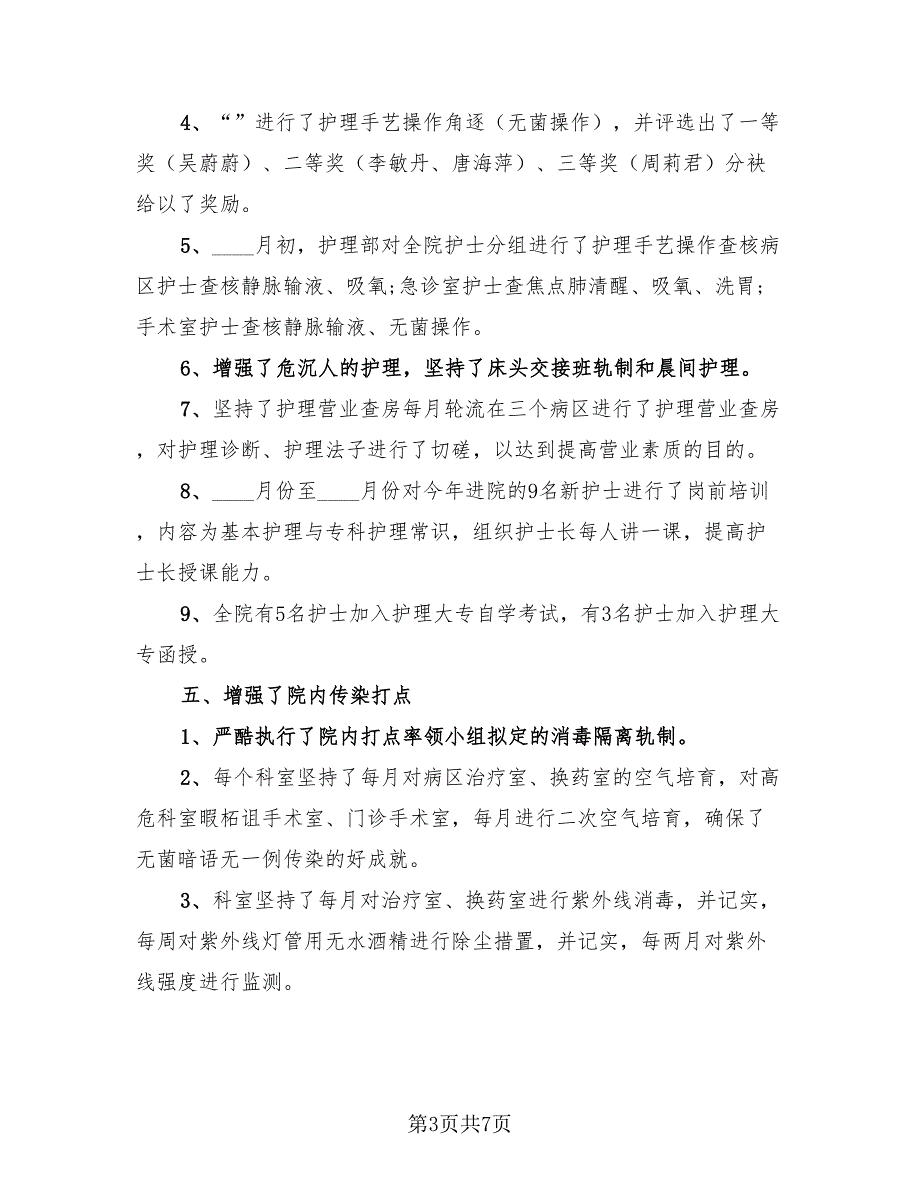 4、“”进行了护理手艺操作角逐（无菌操作），并评选出了一等
奖（吴蔚蔚）、二等奖（李敏丹、唐海萍）、三等奖（周莉君）分袂
给以了奖励。
5、____月初，护理部对全院护士分组进行了护理手艺操作查核病
区护士查核静脉输液、吸氧;急诊室护士查焦点肺清醒、吸氧、洗胃;
手术室护士查核静脉输液、无菌操作。
6、增强了危沉人的护理，坚持了床头交接班轨制和晨间护理。
7、坚持了护理营业查房每月轮流在三个病区进行了护理营业查房
，对护理诊断、护理法子进行了切磋，以达到提高营业素质的目的。
8、____月份至____月份对今年进院的9名新护士进行了岗前培训
，内容为基本护理与专科护理常识，组织护士长每人讲一课，提高护
士长授课能力。
9、全院有5名护士加入护理大专自学考试，有3名护士加入护理大
专函授。
五、增强了院内传染打点
1、严酷执行了院内打点率领小组拟定的消毒隔离轨制。
2、每个科室坚持了每月对病区治疗室、换药室的空气培育，对高
危科室暇柘诅手术室、门诊手术室，每月进行二次空气培育，确保了
无菌暗语无一例传染的好成就。
3、科室坚持了每月对治疗室、换药室进行紫外线消毒，并记实，
每周对紫外线灯管用无水酒精进行除尘措置，并记实，每两月对紫外
线强度进行监测。
第3页共7页